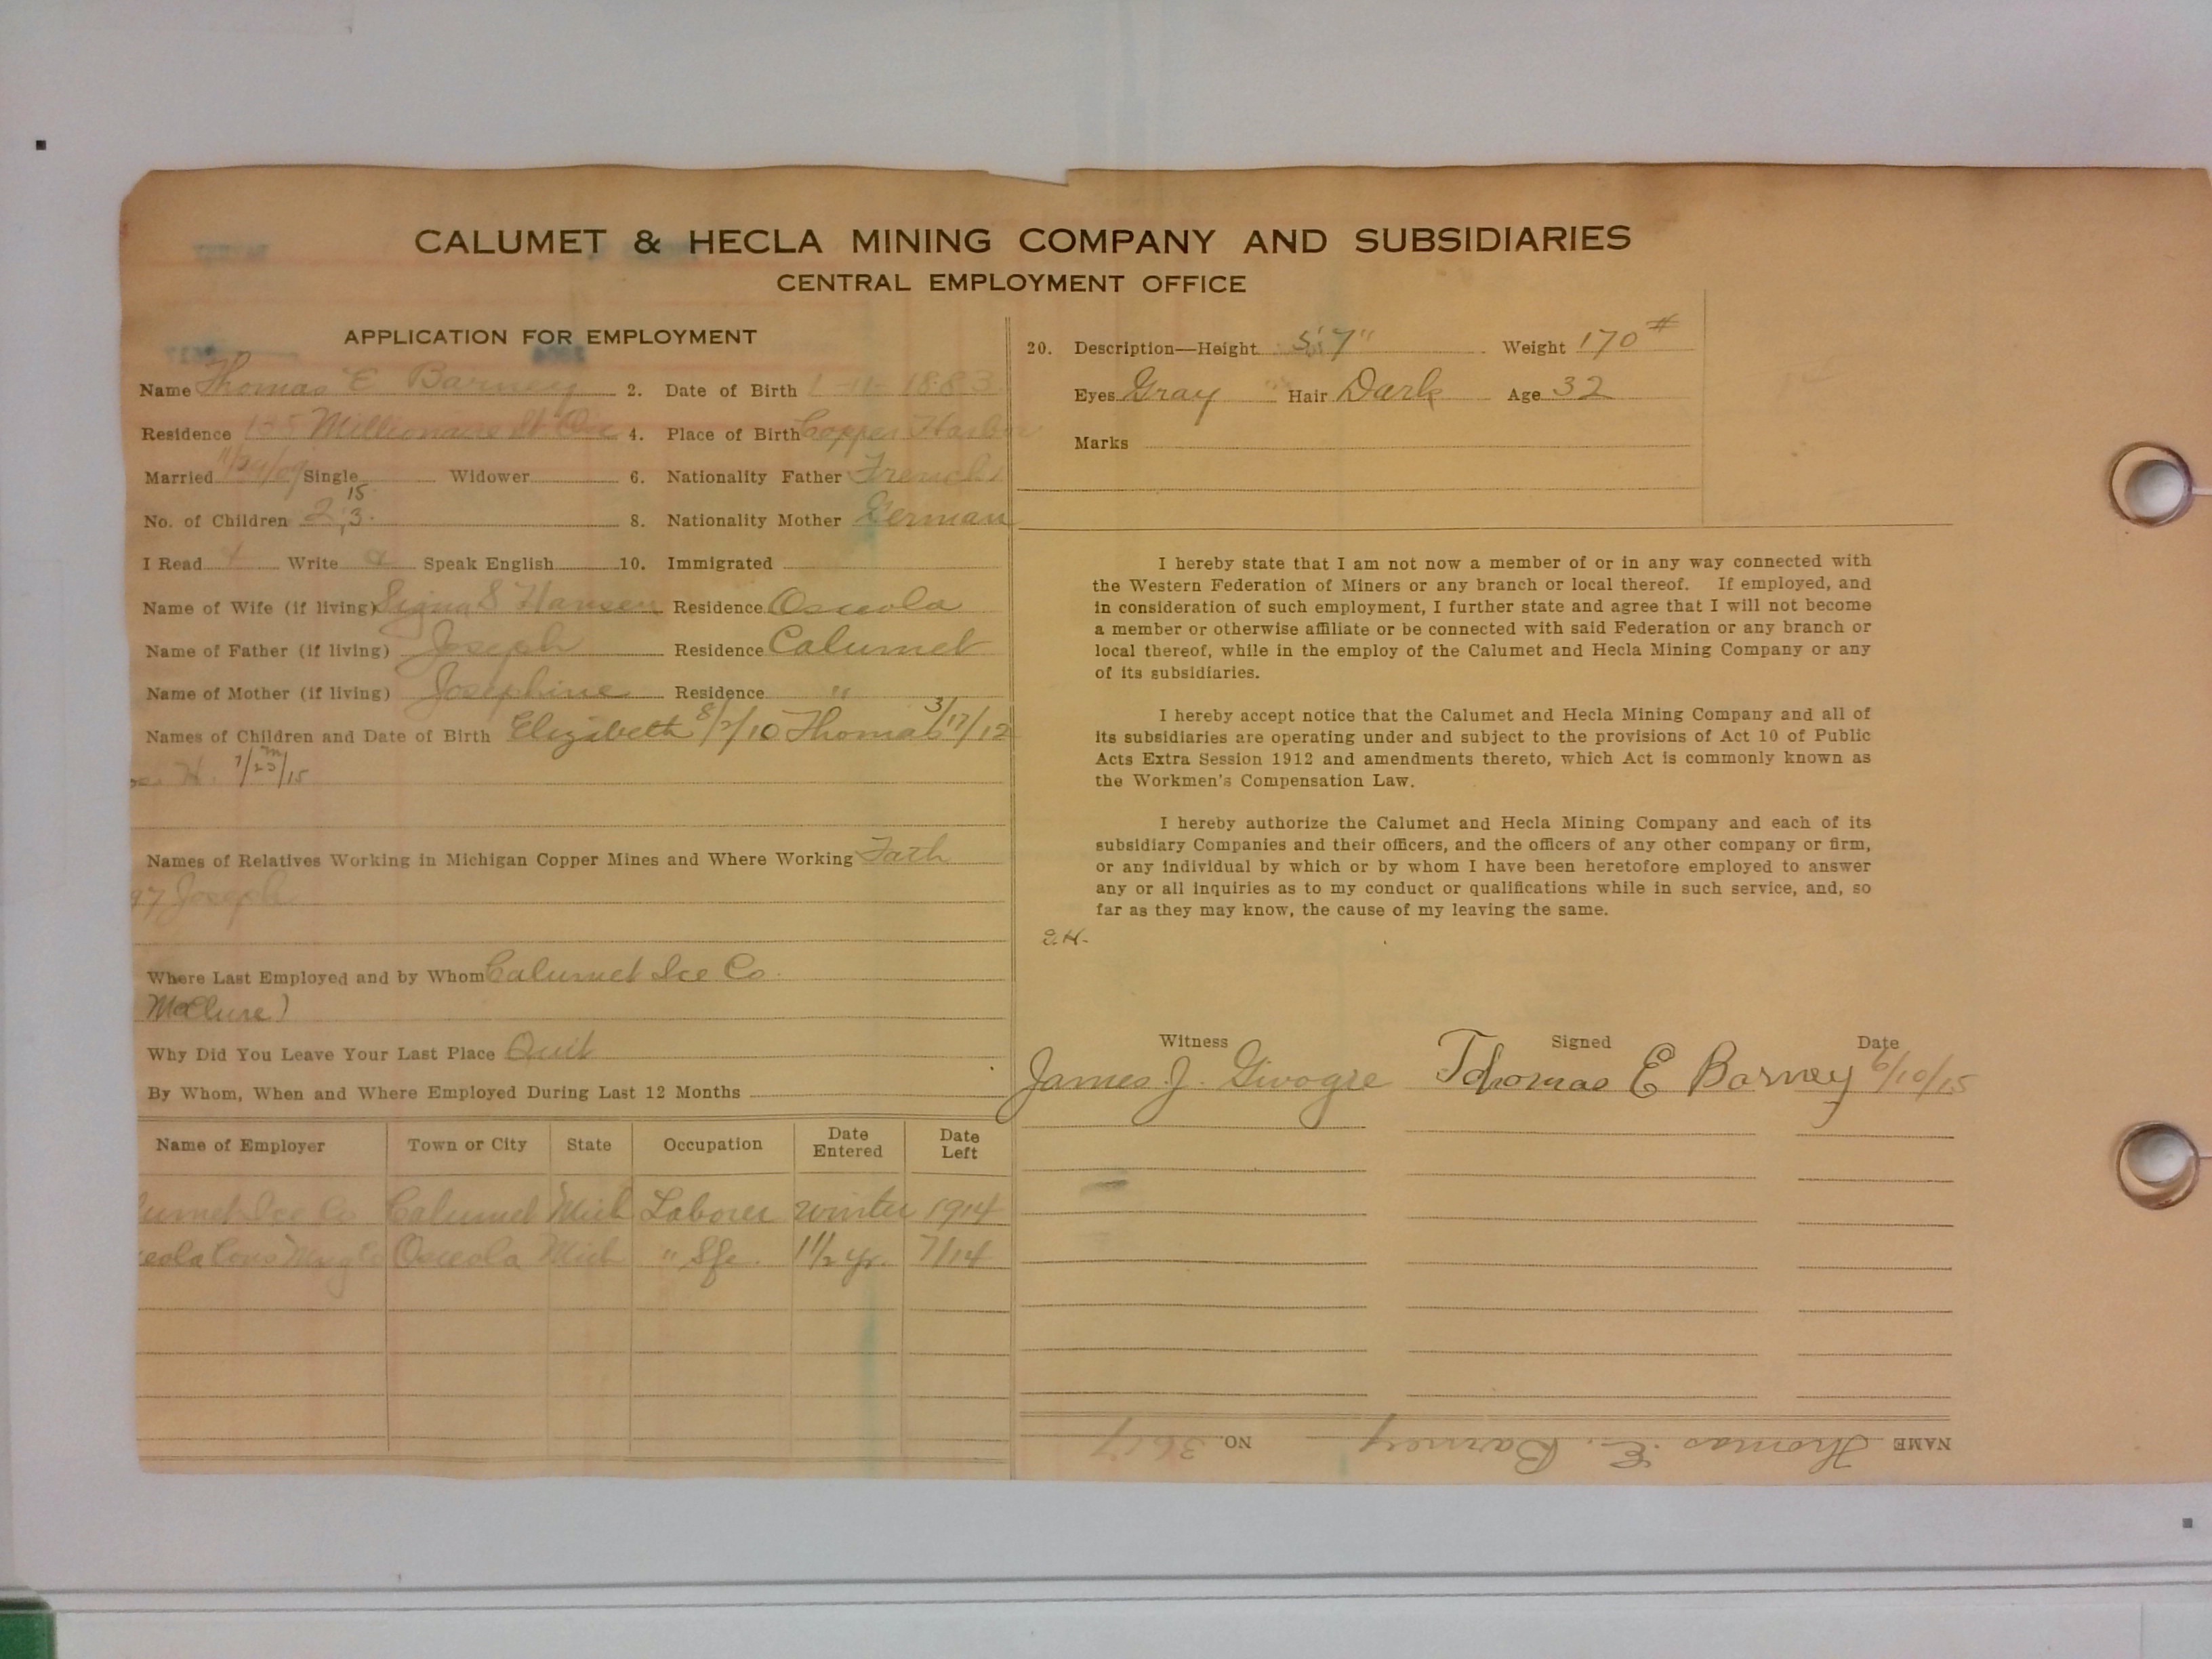 CALUMET & HECLA MINING COMPANY AND SUBSIDIARIES
CENTRAL EMPLOYMENT OFFICE
APPLICATION FOR EMPLOYMENT
Name Thomas E Barney 2. Date of Birth 1-11-1883
Residence 135 Millionaire St Osc 4. Place of Birth Copper Harbor
Married 11/29/09 Single Widower 6. Nationality Father French
15
No. of Children 2, 3. 8. Nationality Mother German
I Read Write Speak English 10. Immigrated
Name of Wife (if living) Signa S Hansen Residence Osceola
Name of Father (if living) Joseph Residence Calumet
Name of Mother (if living) Josephine Residence "
Names of Children and Date of Birth Elizabeth 8/2/10 Thomas 3/17/12
H. 7/25/15
Names of Relatives Working in Michigan Copper Mines and Where Working Fath
Joseph
Where Last Employed and by Whom Calumet Ice Co
McClure)
Why Did You Leave Your Last Place Quit
By Whom, When and Where Employed During Last 12 Months
Name of Employer Town or City State Occupation Date Entered Date Left
umet Ice Co Calumet Mich Laborer winter 1914
eola Cons Mng Co Osceola Mich " Sfc. 1 1/2 yr. 7/14
20. Description—Height 5' 7" Weight 170#
Eyes Gray Hair Dark Age 32
Marks
I hereby state that I am not now a member of or in any way connected with
the Western Federation of Miners or any branch or local thereof. If employed, and
in consideration of such employment, I further state and agree that I will not become
a member or otherwise affiliate or be connected with said Federation or any branch or
local thereof, while in the employ of the Calumet and Hecla Mining Company or any
of its subsidiaries.
I hereby accept notice that the Calumet and Hecla Mining Company and all of
its subsidiaries are operating under and subject to the provisions of Act 10 of Public
Acts Extra Session 1912 and amendments thereto, which Act is commonly known as
the Workmen's Compensation Law.
I hereby authorize the Calumet and Hecla Mining Company and each of its
subsidiary Companies and their officers, and the officers of any other company or firm,
or any individual by which or by whom I have been heretofore employed to answer
any or all inquiries as to my conduct or qualifications while in such service, and, so
far as they may know, the cause of my leaving the same.
Witness Signed Date
James J. Givogre Thomas E Barney 6/10/15
NAME Thomas E. Barney NO. 3617